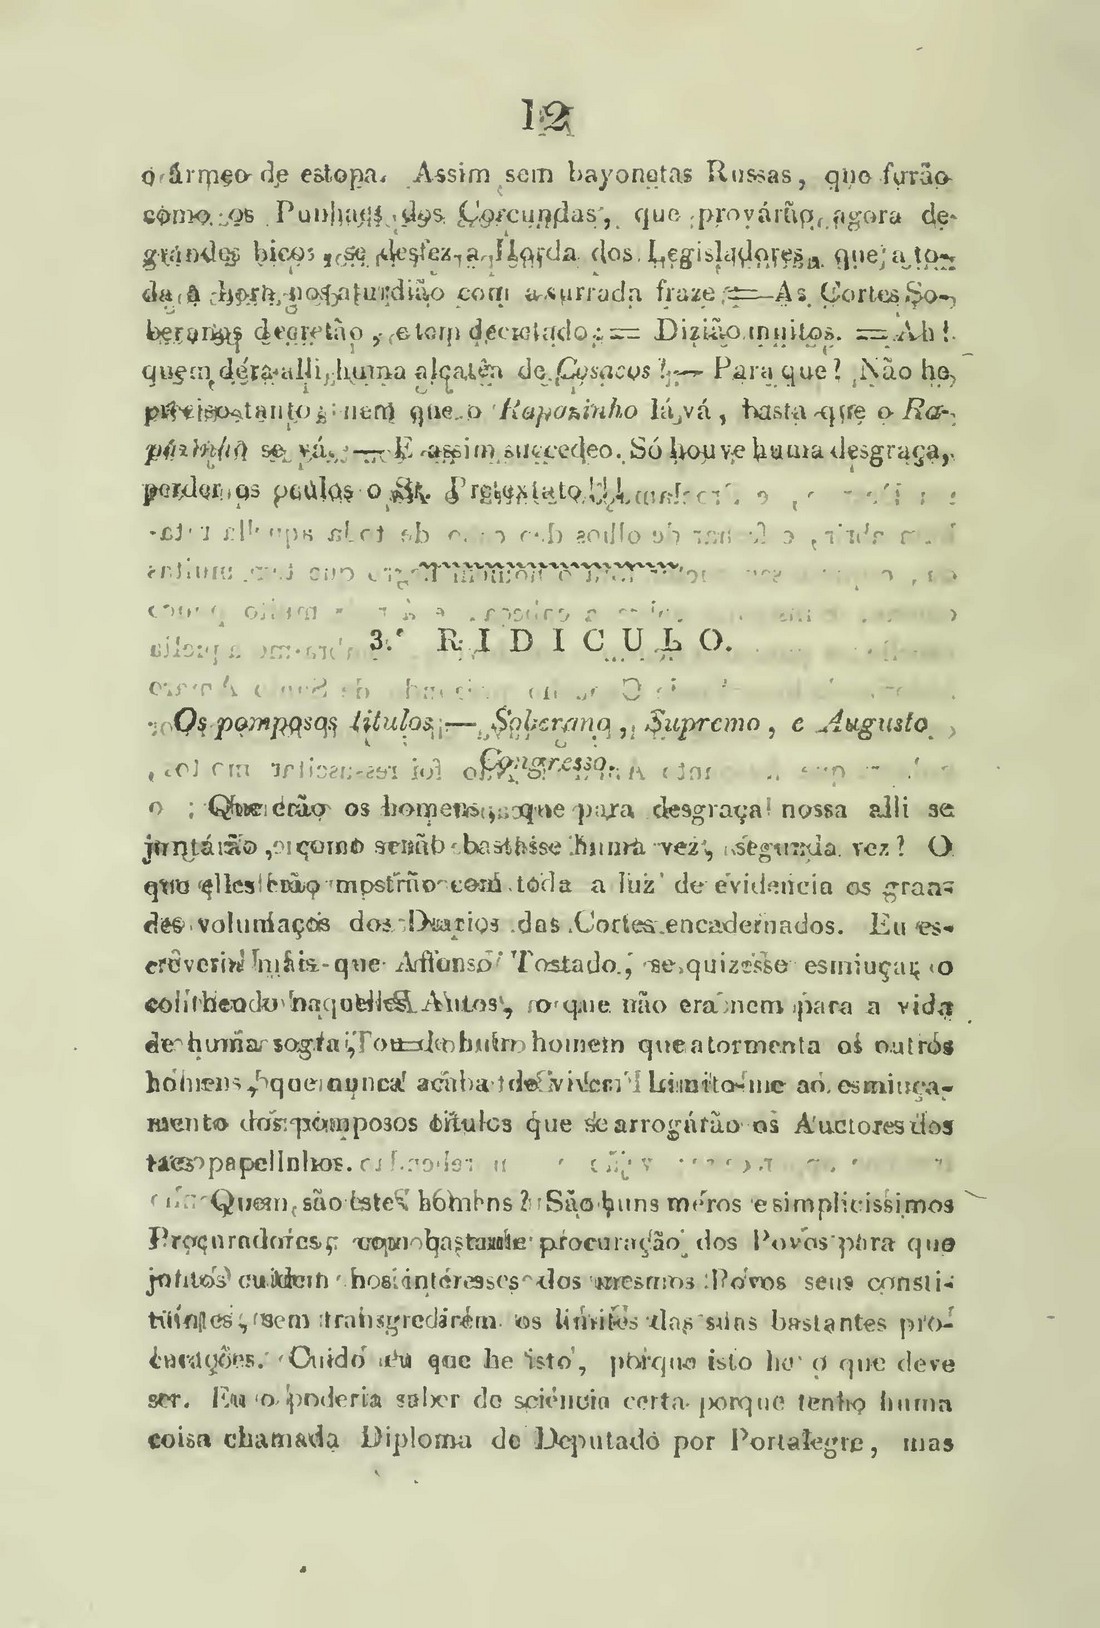 12
o ármeo de estopa. Assim sem bayonetas Russas, que furão
como os Punhaes dos Corcundas, que provárão agora de
grandes bicos, se desfez a Horda dos Legisladores, que a to-
da a hora nos aturdião com a surrada fraze = As Cortes So-
beranas decretão, e tem decretado: = Dizião muitos. = Ah!
quem déra alli huma alcatêa de Cosacos! — Para que? Não he
preciso tanto; nem que o Rapazinho lá vá, basta que o Ra-
pazinho se vá. — E assim succedeo. Só houve huma desgraça,
perder os paulos o Sr. Pretextato!!!
3.º RIDICULO.
Os pomposos titulos — Soberano, Supremo, e Augusto
Congresso.
Que erão os homens, que para desgraça nossa alli se
juntárão, e como senão bastasse huma vez, segunda vez? O
que elles erão mostrão com toda a luz de evidencia os gran-
des volumaços dos Diarios das Cortes encadernados. Eu es-
creveria mais que Affonso Tostado, se quizesse esmiuçar o
contheudo naquelles Autos, o que não era nem para a vida
de huma sogra, ou de hum homem que atormenta os outros
homens, que nunca acaba de viver! Limito-me ao esmiuça-
mento dos pomposos titulos que se arrogárão os Auctores dos
taes papelinhos.
Quem são estes homens? São huns méros e simplicissimos
Procuradores, com bastante procuração dos Povos para que
juntos cuidem nos interesses dos mesmos Povos seus consti-
tuintes, sem transgredirem os limites das suas bastantes pro-
curações. Cuido eu que he isto, porque isto he o que deve
ser. Eu o poderia saber de sciencia certa porque tenho huma
coisa chamada Diploma de Deputado por Portalegre, mas